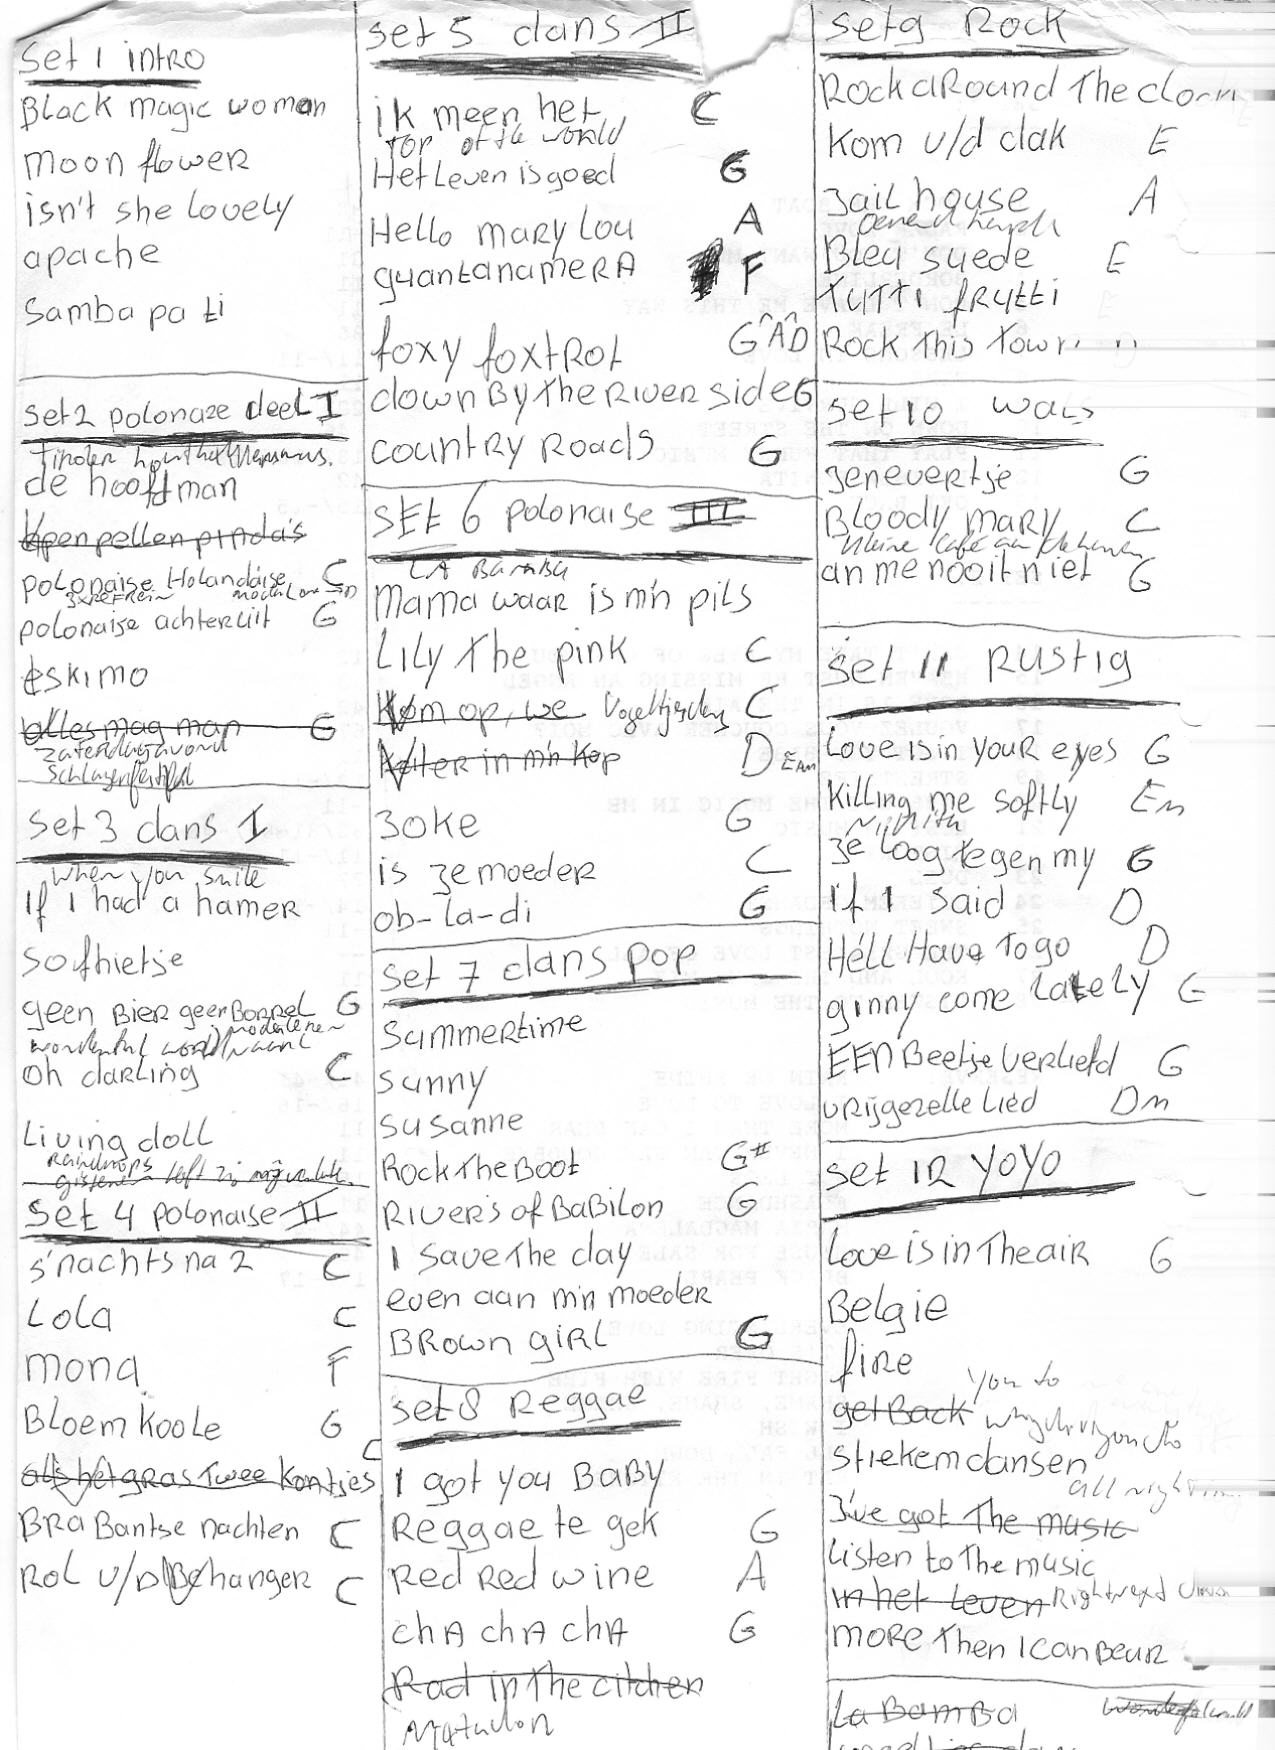 Set 1 intro
Black magic woman
moon flower
isn't she lovely
apache
Samba pa ti
Set 2 polonaze deel I
de hooffman
polonaise Holandaise C
3x REFREIN
polonaise achteruit G
Eskimo
alles mag man G
zaterdagavond
Schlagerfestival
Set 3 dans I
When you smile
If I had a hamer
Sofhietje
geen Bier geen Borrel G
Oh darling C
Living doll
Raindrops
Set 4 polonaise II
s'nachts na 2 C
Lola C
mona F
Bloem koole G
C
als het gras twee kontjes
BRaBantse nachten C
Rol v/d Behanger C
set 5 dans II
ik meen het C
TOP of the world
Het Leven is goed G
Hello mary lou A
guantanameRA F
foxy foxtRot G A D
down By the River side G
country Roads G
SEt 6 polonaise III
LA BamBa
Mama waar is m'n pils
Lily The pink C
Kom op, we C
Keiter in m'n kop D E Am
zoke G
is ze moeder C
ob-la-di G
Set 7 dans pop
summertime
sunny
susanne
Rock The Boot G#
RiveRs of BaBilon G
I save The day
even aan m'n moeder
BRown giRL G
set 8 Reggae
I got you BaBy
Reggae te gek G
Red Red wine A
chA chA chA G
Rad in The citchen
Matador
set 9 Rock
Rock aRound The clock
Kom v/d dak E
Jail house A
Bleu suede E
TUTTi fRutti E
Rock This Town D
set 10 wals
Jenevertje G
Bloody maRy C
an me nooit niet G
set 11 Rustig
Love is in youR eyes G
Killing me softly Em
Ze loog tegen my G
if I said D
He'll Have to go D
ginny come lately G
EEn Beetje verliefd G
vrijgezelle Lied Dm
set 12 YOYO
Love is in The air G
Belgie
fiRe
You to
get Back
stiekem dansen
all night
I've got The music
Listen to The music
in het Leven Right next door
moRe Then I can Beur
La BamBa